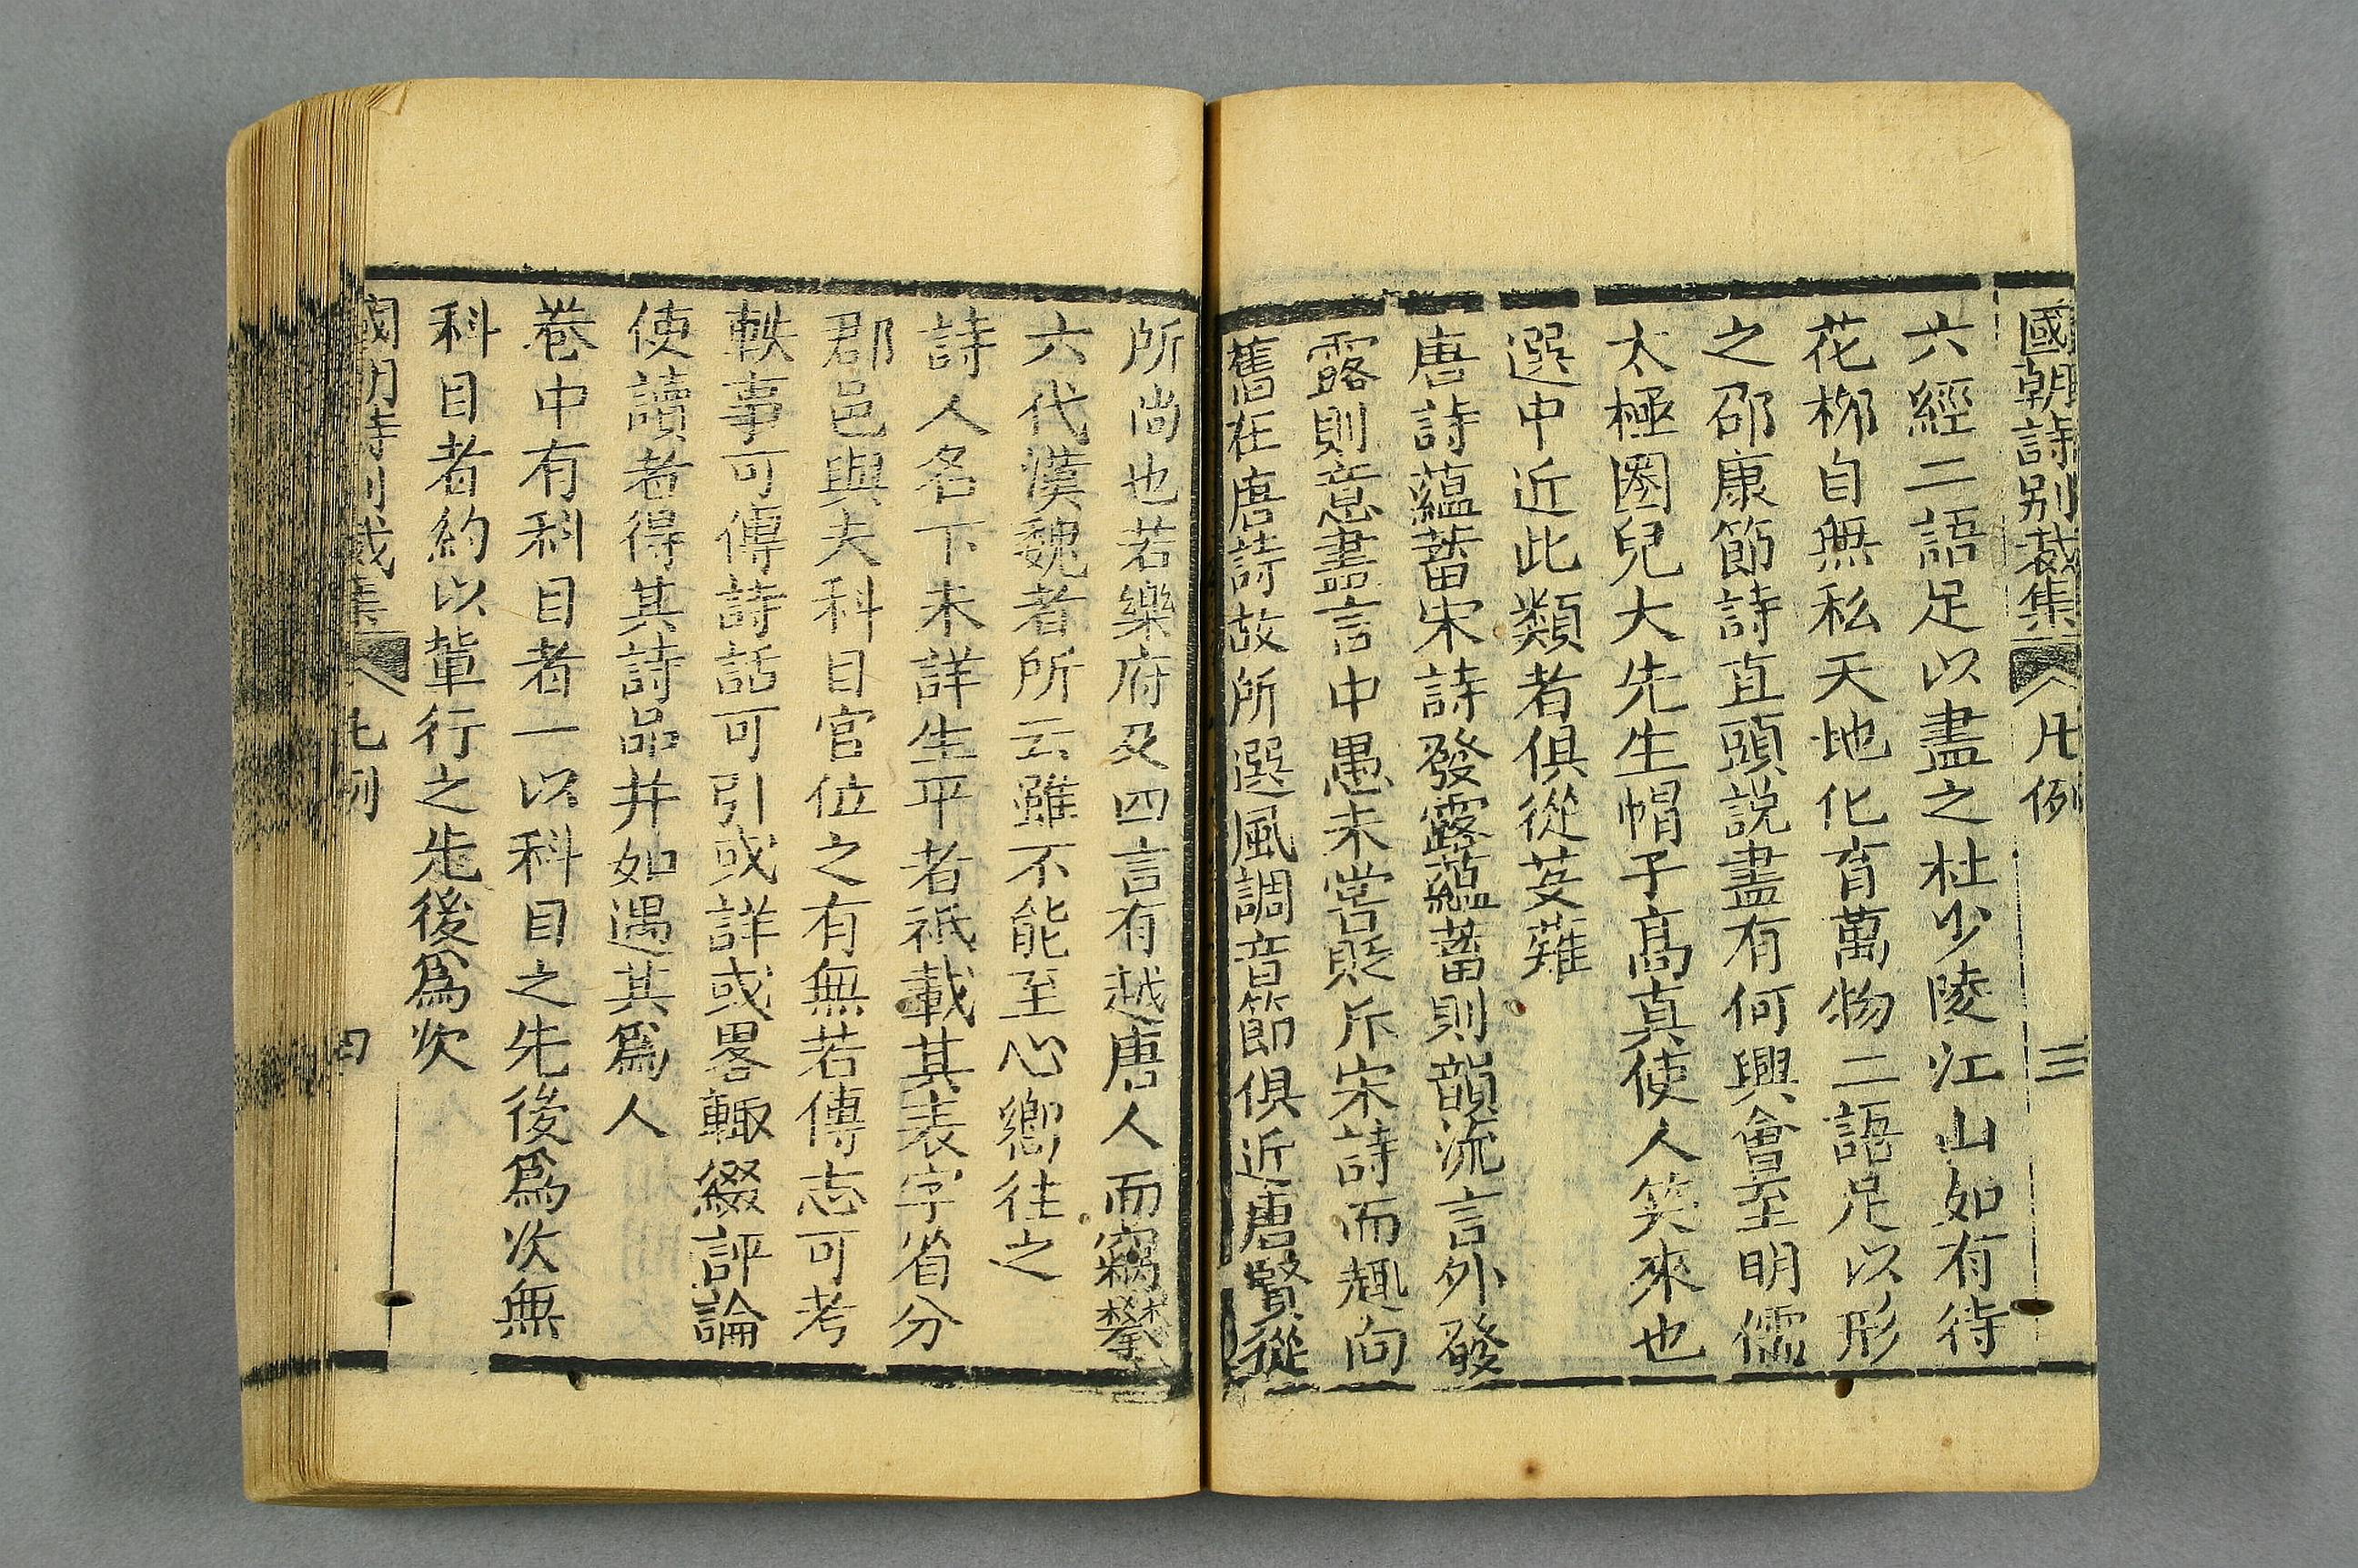 國朝詩別裁集 凡例 三
六經二語足以盡之杜少陵江山如有待
花柳自無私天地化育萬物二語足以形
之邵康節詩直頭說盡有何興會至明儒
太極圈兒大先生帽子高真使人笑來也
選中近此類者俱從芟薙
唐詩蘊蓄宋詩發露蘊蓄則韻流言外發
露則意盡言中愚未嘗貶斥宋詩而趣向
舊在唐詩故所選風調音節俱近唐賢從
所尚也若樂府及四言有越唐人而竊攀
六代漢魏者所云雖不能至心嚮往之
詩人名下未詳生平者祇載其表字省分
郡邑與夫科目官位之有無若傳志可考
軼事可傳詩話可引或詳或畧輙綴評論
使讀者得其詩品井如遇其爲人
卷中有科目者一以科目之先後爲次無
科目者約以輩行之先後爲次
國朝詩別裁集 凡例 四